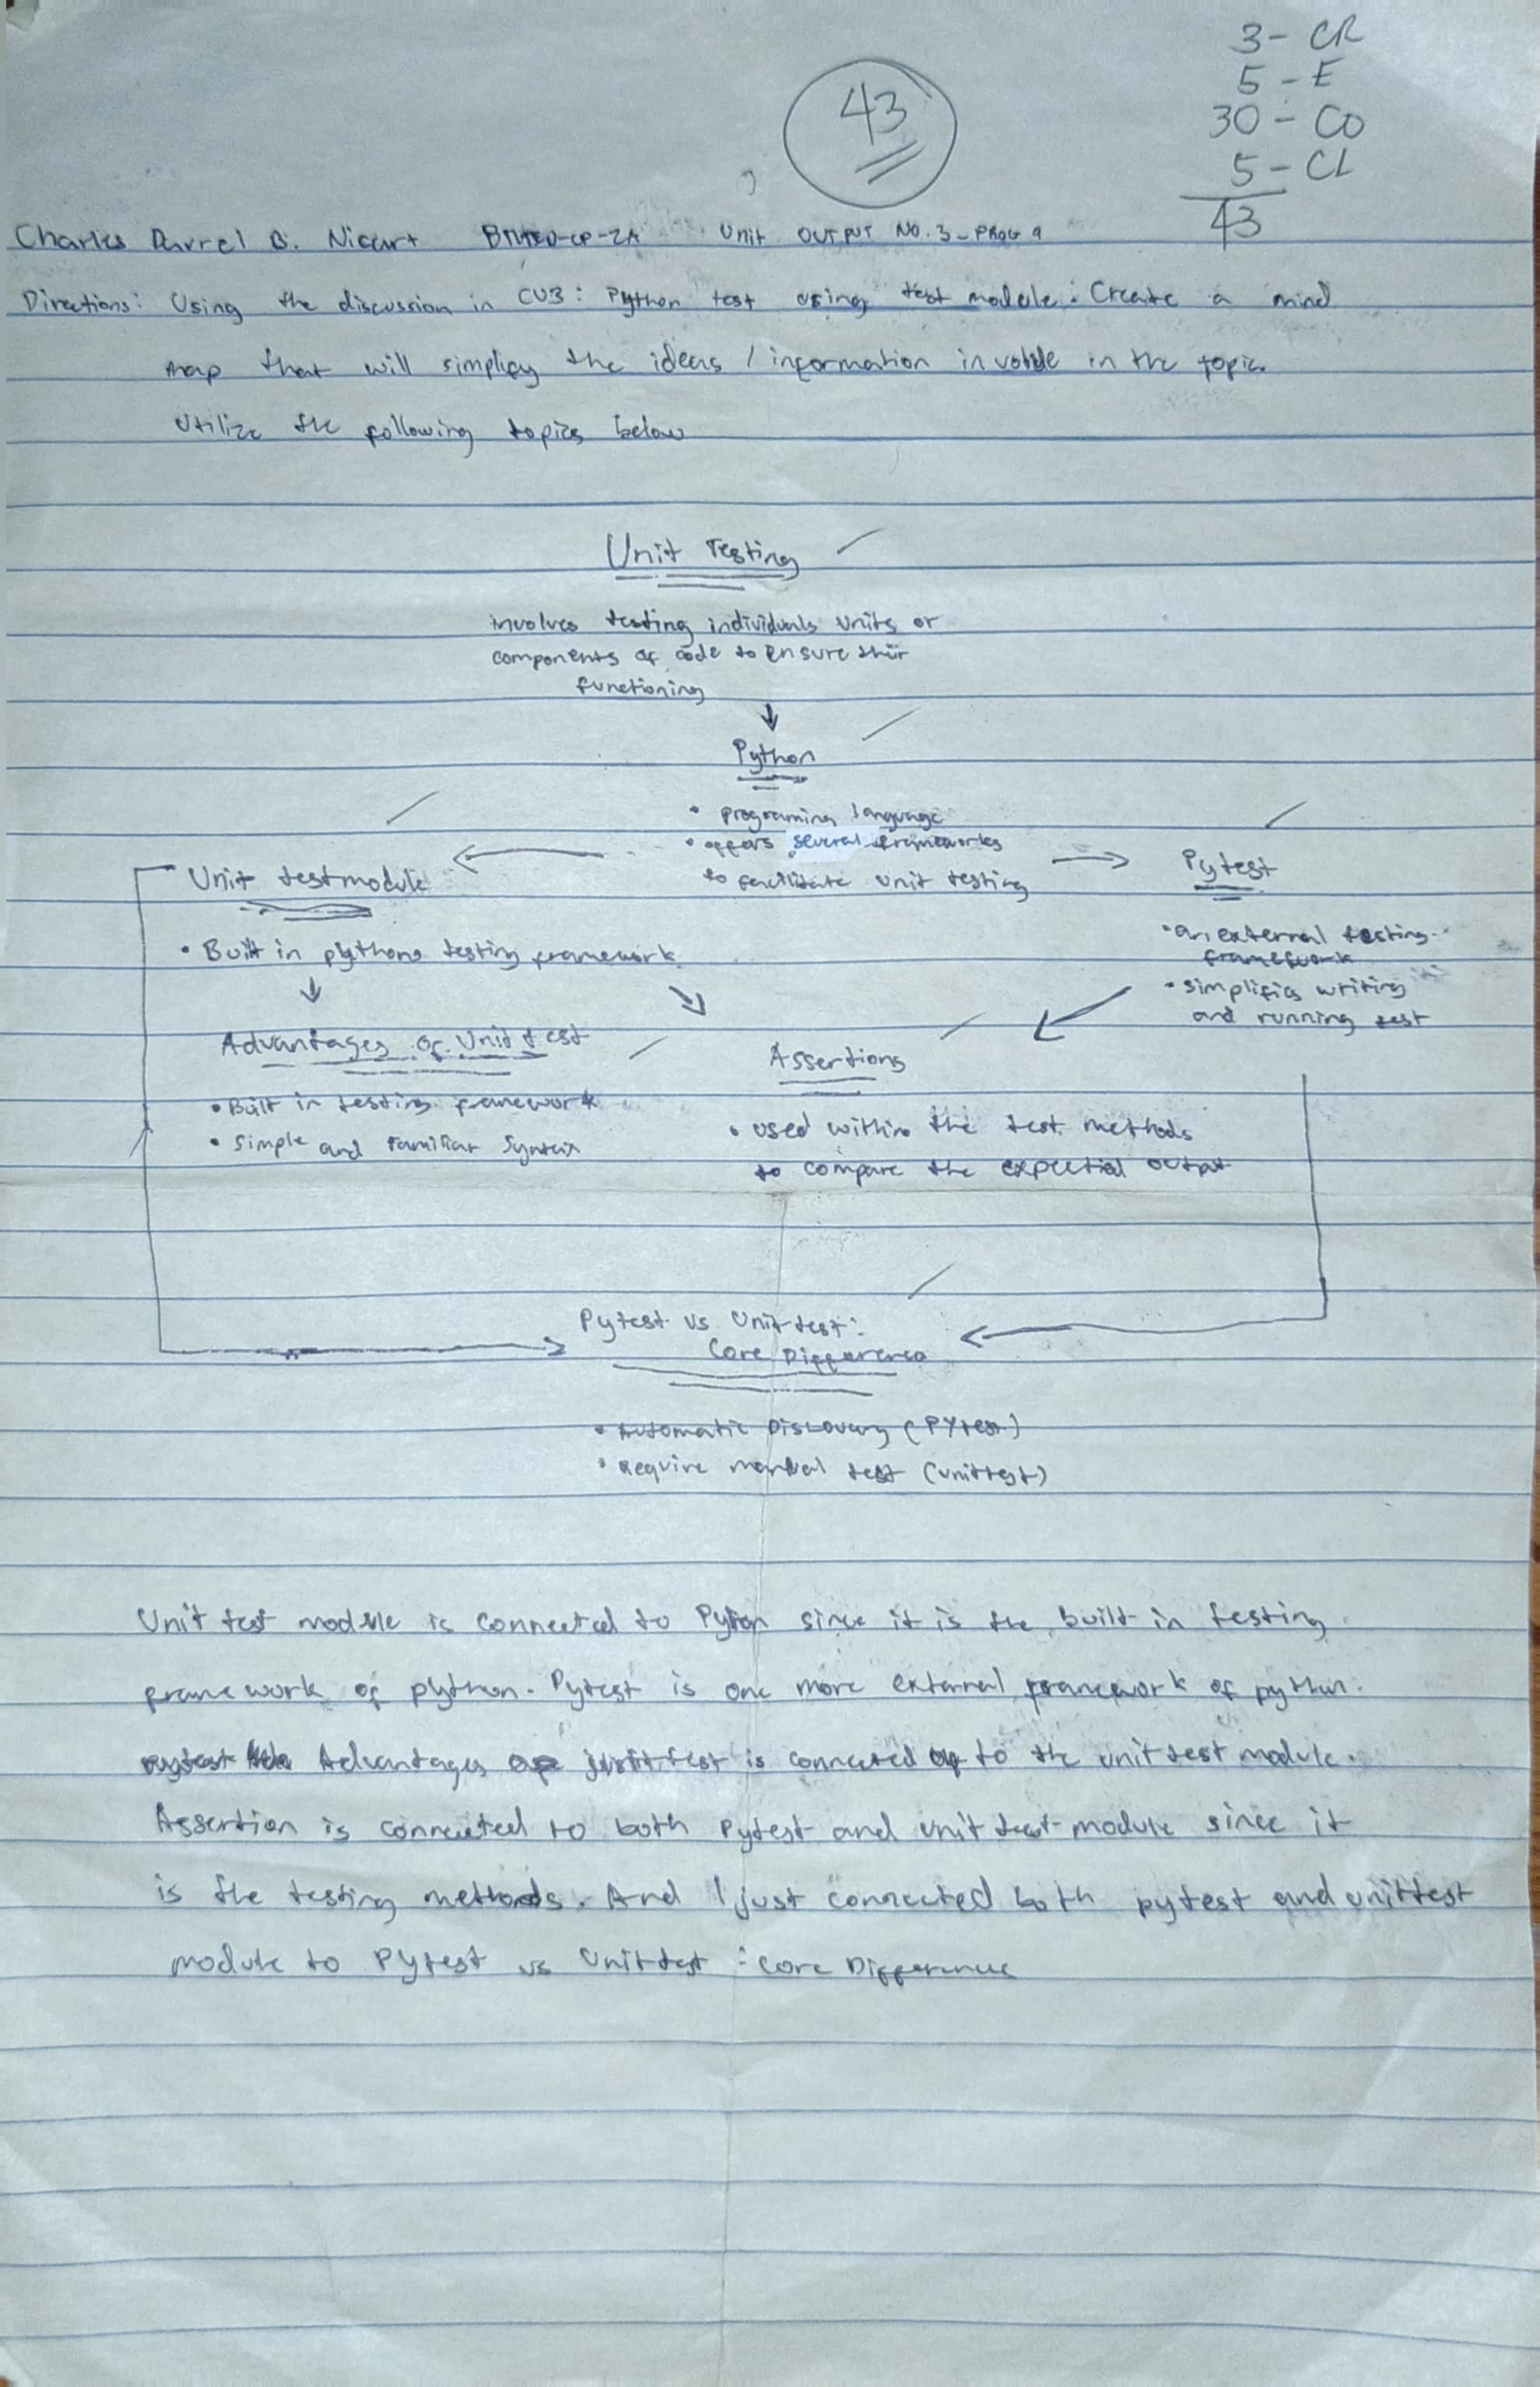 3 - CR
5 - E
30 - CO
5 - CL
43
43
Charles Darrel B. Nicart BTVTED-CP-2A Unit OUTPUT NO. 3 - PROG 9
Directions: Using the discussion in CU3: Python test using test module. Create a mind
map that will simplify the ideas / information involve in the topic.
Utilize the following topics below
Unit Testing
involves testing individuals units or
components of code to ensure their
functioning
Python
• programing language
• offers several frameworks
to facilitate unit testing
Unit testmodule
• Built in pythons testing framework
Pytest
• an external testing
framework
• simplifies writing
and running test
Advantages of Unit test
• Built in testing framework
• Simple and Familiar Syntax
Assertions
• used within the test methods
to compare the expected output
Pytest vs Unittest:
Core Difference
• Automatic Discovery (PYtest)
• Require manual test (unittest)
Unit test module is connected to Pyton since it is the built in testing
framework of python. Pytest is one more external framework of python.
Advantages of unittest is connected to the unittest module.
Assertion is connected to both Pytest and unit test module since it
is the testing methods. And I just connected both pytest and unittest
module to PYtest vs Unittest : Core Difference